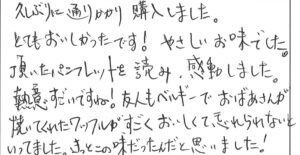 久しぶりに通りかかり購入しました。
とてもおいしかったです！ やさしいお味でした。
頂いたパンフレットを読み、感動しました。
熱意すごいですね！友人もベルギーでおばあさんが
焼いてくれたワッフルがすごくおいしくて忘れられないと
いってました。きっとこの味だったんだと思いました！